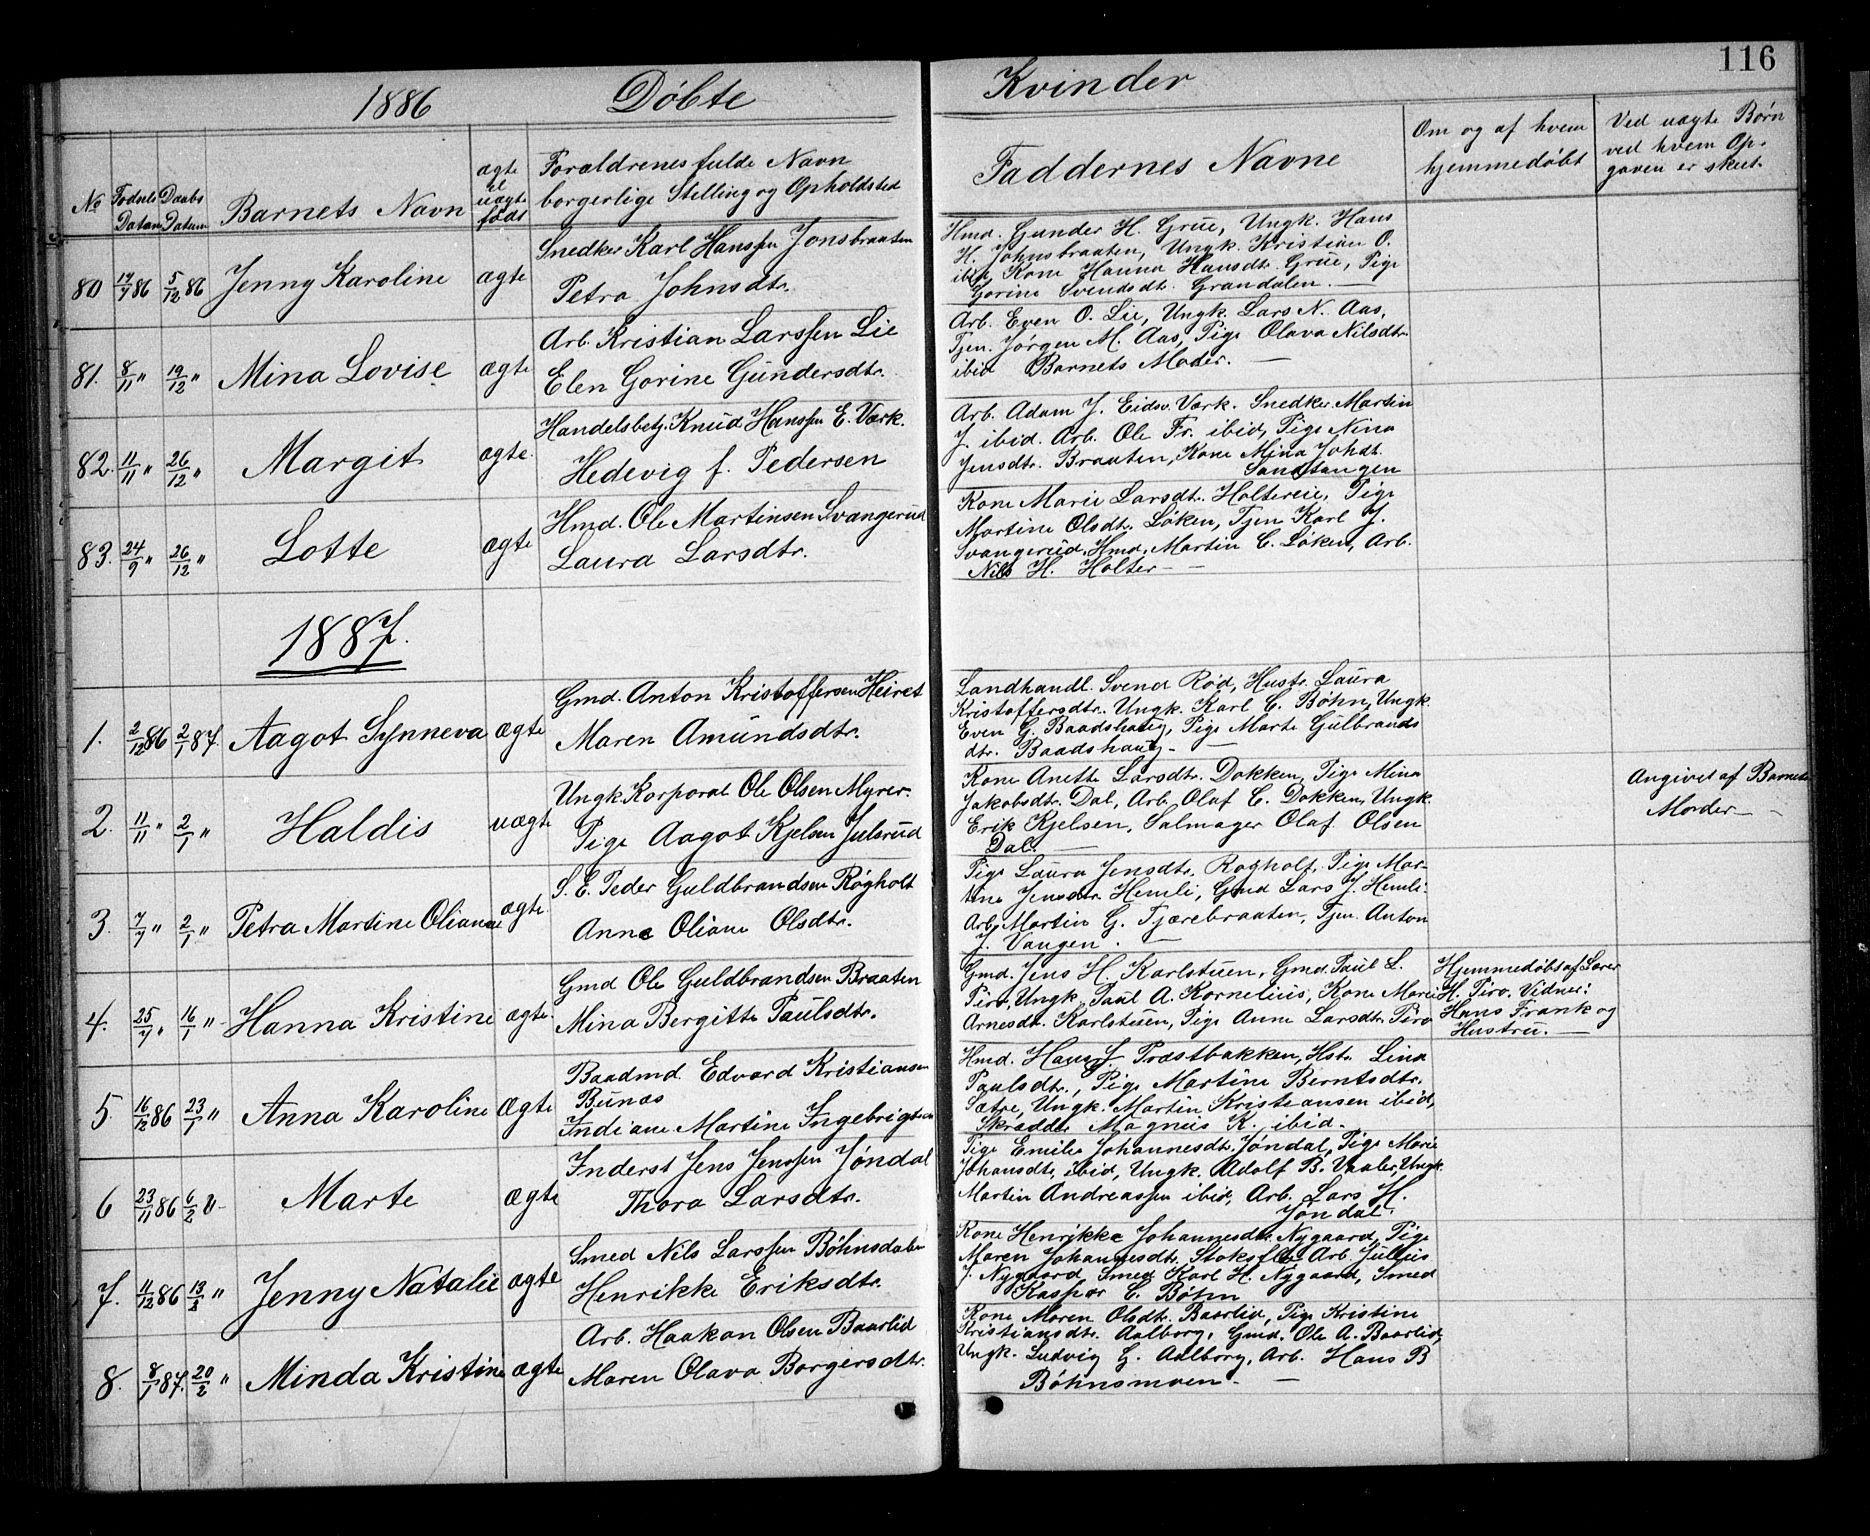 116
1886 Døbte Kvinder
No Fødsels Datum Daabs Datum Barnets Navn ægte el uægte født Forældrenes fulde Navn borgerlige Stilling og Opholdsted
Faddernes Navne
Om og af hvem hjemmedøbt
Ved uægte Børn ved hvem Opgaven er skeet
80 5/12 86 Jenny Karoline ægte
Snedker Karl Hanssen Jonsbraaten
Petra Johnsdtr.
Hmd. Gunder H. Grue, Ungk. Hans
H. Johnsbraaten, Ungk. Kristian O.
ibid, Kone Hanna Hansdtr. Grue, Pige
Gorine Svendsdt. Grandalen.
81. 8/11 " 19/12 " Mina Lovise ægte
Arb. Kristian Larssen Lie
Elen Gorine Gundersdtr.
Arb. Even O. Lie, Ungk. Lars N. Aas,
Tjen. Jørgen M. Aas, Pige Olava Nilsdtr.
ibid Barnets Moder.
82. 11/11 " 26/12 " Margit ægte.
Handelsbetj. Knud Hanssen E. Værk.
Hedevig f. Pedersen
Arb. Adam J. Eidsv. Værk. Snedker Martin
J. ibid. Arb. Ole Fr. ibid, Pige Nina
Jensdtr. Braaten, Kone Mina Johdt.
Sandtangen
83. 24/9 " 26/12 " Lotte ægte
Hmd. Ole Martinsen Svangerud
Laura Larsdtr.
Kone Marie Larsdtr. Holtereie, Pige
Martine Olsdtr. Løken, Tjen Karl J.
Svangerud, Hmd. Martin C. Løken, Arb.
Nils H. Holter
1887.
1. 2/12 86 2/1 87. Aagot Synneva ægte
Gmd. Anton Kristoffersen Heiret
Maren Amundsdtr.
Landhandl. Svend Rød, Hustr. Laura
Kristoffersdtr. Ungk. Karl C. Bøhn, Ungk.
Even G. Baadshaug, Pige Marte Gulbrands
dtr. Baadshaug
2. 11/11 " 2/1 " Haldis uægte
Ungk. Korporal Ole Olsen Myrer.
Pige Aagot Kjelsen Julsrud
Kone Anette Larsdtr. Dokken, Pige Mina
Jakobsdtr. Dal, Arb. Olaf C. Dokken, Ungk.
Erik Kjelsen, Salmager Olaf Olsen
Dal.
Angivet af Barnets
Moder
3. 7/7 " 2/1 " Petra Martine Oliane ægte.
S. E. Peder Guldbrandsen Røgholt
Anne Oliane Olsdtr.
Pige Laura Jensdtr. Rogholt, Pige Mar-
tine Jensdtr Hemli, Gmd Lars J. Hemli.
Arb. Martin G. Tjærebraaten, Tjen. Anton
J. Vangen.
4. 25/7 " 16/1 " Hanna Kristine ægte.
Gmd Ole Guldbrandsen Braaten
Mina Bergitte Paulsdtr.
Gmd. Jens H. Karlstuen, Gmd. Paul L.
Piro, Ungk. Paul A. Kornelius, Kone Marie
Arnesdt. Karlstuen, Pige Anne Larsdtr. Piro
Hjemmedøbt af Lærer
H. Piro. Vidner:
Hans Frank og
Hustru.
5. 16/12 86 23/1 " Anna Karoline Ægte
Baadmd. Edvard Kristiansen
Bunæs
Indiane Martine Ingebrigtsdtr
Hmd. Hans J. Præstbakken, Hstr. Lina
Paulsdtr., Pige Martine Berntsdtr.
Sætre, Ungk. Martin Kristiansen ibid,
Skrædder Magnus K. ibid.
6 23/11 86 6/2 " Marte Ægte
Inderst Jens Jenssen Jøndal
Thora Larsdtr.
Pige Emilie Johannesdtr. Jøndal, Pige Marie
Johansdtr. ibid, Ungk. Adolf B. Vaaler, Ungk.
Martin Andreassen ibid, Arb. Lars H.
Jøndal.
7. 11/12 86 13/2 " Jenny Natalie ægte
Smed Nils Larssen Bøhnsdalen
Henrikke Eriksdtr.
Kone Henrikke Johannesdtr. Nygaard, Pige
Maren Johannesdtr. Stoksflet Arb. Julius
J. Nygaard, Smed Karl H. Nygaard, Smed
Kaspar C. Bøhn
8. 8/1 87. 20/2 " Minda Kristine ægte
Arb. Haakon Olsen Baarlid
Maren Olava Borgersdtr.
Kone Maren Olsdtr. Baarlid, Pige Kristine
Kristiansdtr. Aalborg, Gmd. Ole A. Baarlid,
Ungk. Ludvig G. Aalborg, Arb. Hans B
Bøhnsmoen